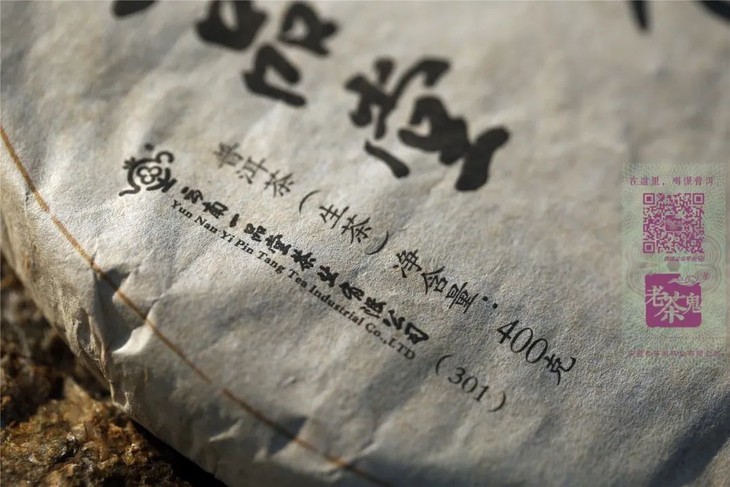 品堂
普洱茶（生茶）净含量：400克
云南一品堂茶业有限公司
Yun Nan Yi Pin Tang Tea Industrial Co.,LTD
（301）
在这里，喝懂普洱
老茶鬼